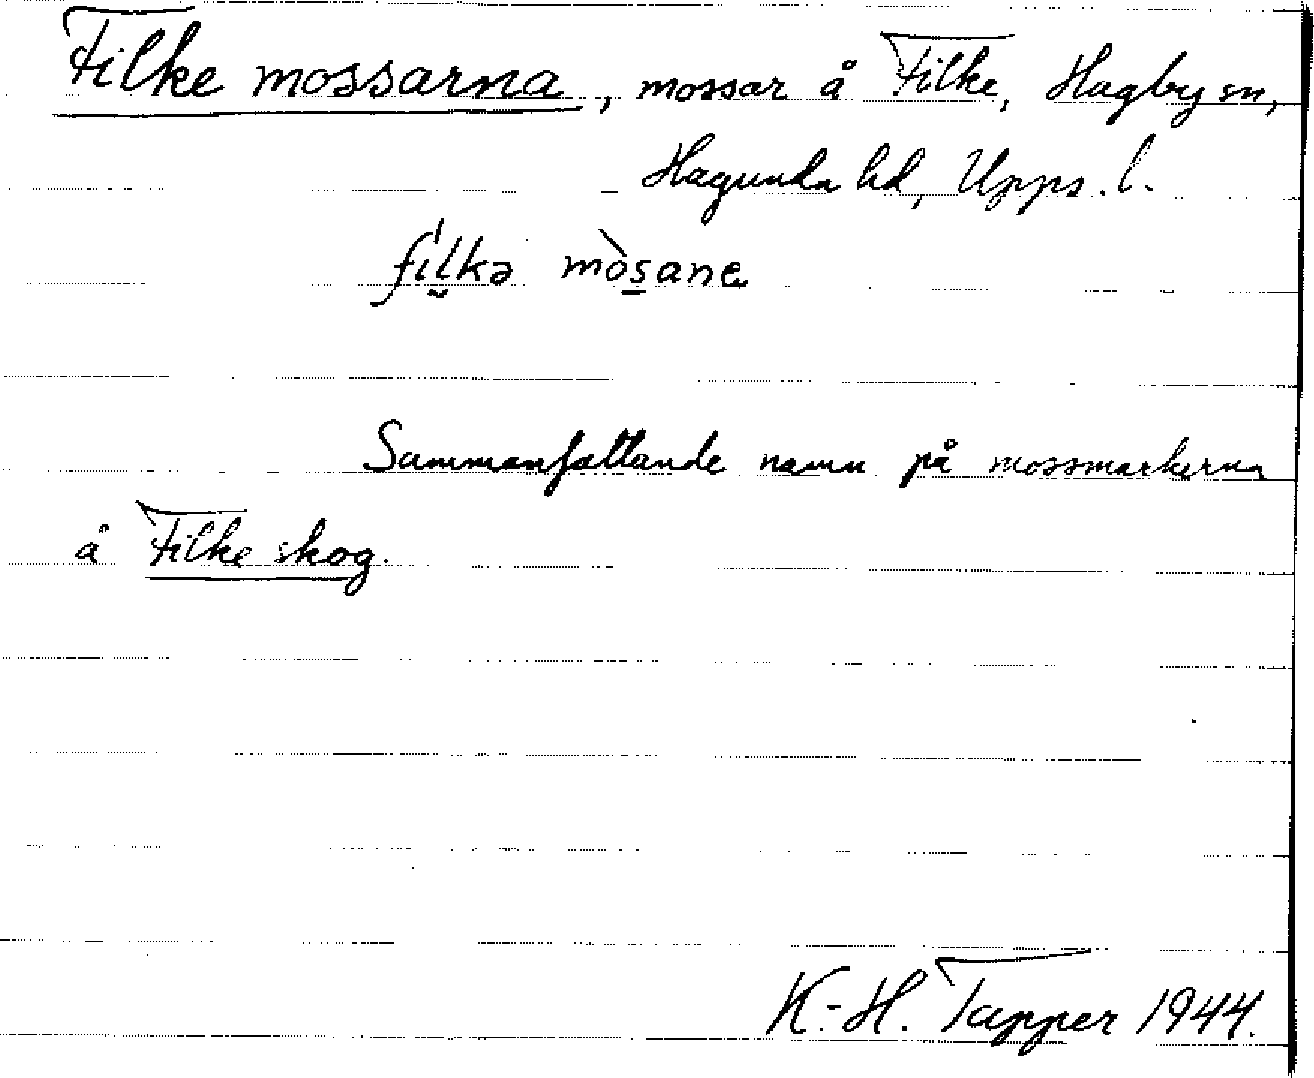 Filke mossarna, mossar å Filke, Hagby sn,
Hagunda hd, Upps. l.
fı̍l̮kə mòs̠ane
Sammanfattande namn på mossmarkerna
å Filke skog.
K.-H. Tapper 1944.